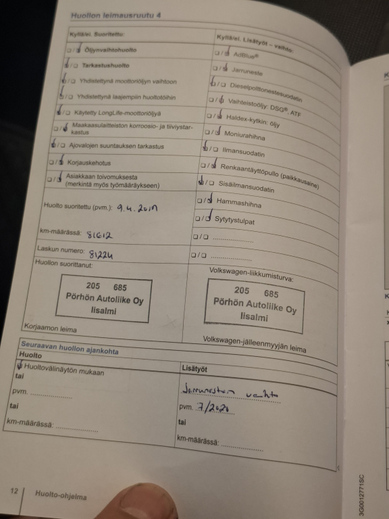 Huollon leimausruutu 4
Kyll/ei. Suoritettu:
Öljynvaihtohuolto
Tarkastushuolto
Yhdistettynä moottoriöljyn vaihtoon
Yhdistettynä laajempiin huoltotöihin
Käytetty LongLife-moottoriöljyä
Maakaasulaitteiston korroosio- ja tiiviystar-
kastus
Ajovalojen suuntauksen tarkastus
Korjauskehotus
Asiakkaan toivomuksesta
(merkintä myös työmääräykseen)
Huolto suoritettu (pvm.):
km-määrässä: 81612
Laskun numero: 81224
Huollon suorittanut:
205 685
Pörhön Autoliike Oy
Iisalmi
Korjaamon leima
Kyll/ei. Lisätyöt – vaihto:
AdBlue®
Jarruneste
Dieselpolttonestesuodatin
Vaihteistoöljy: DSG®, ATF
Haldex-kytkin: öljy
Moniurahihna
Ilmansuodatin
Renkaantäyttöpullo (paikkausaine)
Sisäilmansuodatin
Hammashihna
Sytytystulpat
Volkswagen-liikkumisturva:
205 685
Pörhön Autoliike Oy
Iisalmi
Volkswagen-jälleenmyyjän leima
Seuraavan huollon ajankohta
Huolto
Huoltovälinäytön mukaan
tai
pvm
tai
km-määrässä:
Lisätyöt
Jarrunesteen vaihto
pvm. 7/2020
tai
km-määrässä:
12 Huolto-ohjelma
3G0012771SC